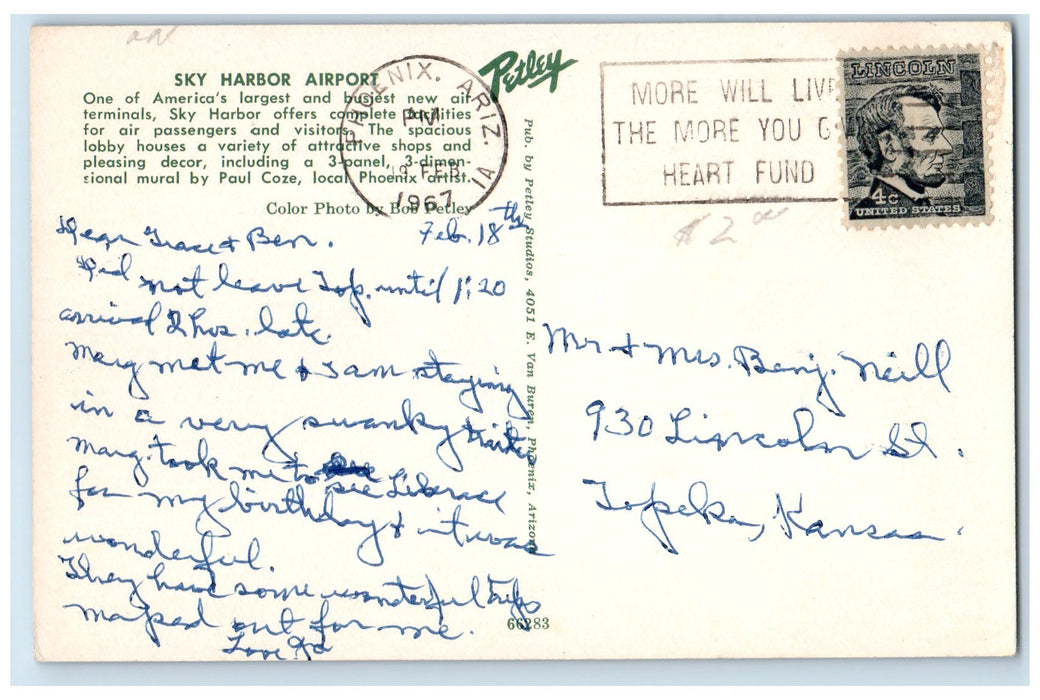 SKY HARBOR AIRPORT
One of America's largest and busiest new air
terminals, Sky Harbor offers complete facilities
for air passengers and visitors. The spacious
lobby houses a variety of attractive shops and
pleasing decor, including a 3-panel, 3-dimen-
sional mural by Paul Coze, local Phoenix artist.
Color Photo by Bob Petley
Petley
PHOENIX, ARIZ.
PM
19 FEB
1967
1A
MORE WILL LIVE
THE MORE YOU GIVE
HEART FUND
LINCOLN
4c
UNITED STATES
$2
Pub. by Petley Studios, 4051 E. Van Buren, Phoenix, Arizona
Feb. 18th
Dear Grace & Ben.
Did not leave Top. until 1:20
arrived 2 hrs. late.
Marg met me & I am staying
in a very swanky trailer
Marg. took me to see Liberace
for my birthday & it was
wonderful.
They have some wonderful trips
maped out for me.
Love
Mr & Mrs. Benj. Neill
930 Lincoln St.
Topeka, Kansas.
66283